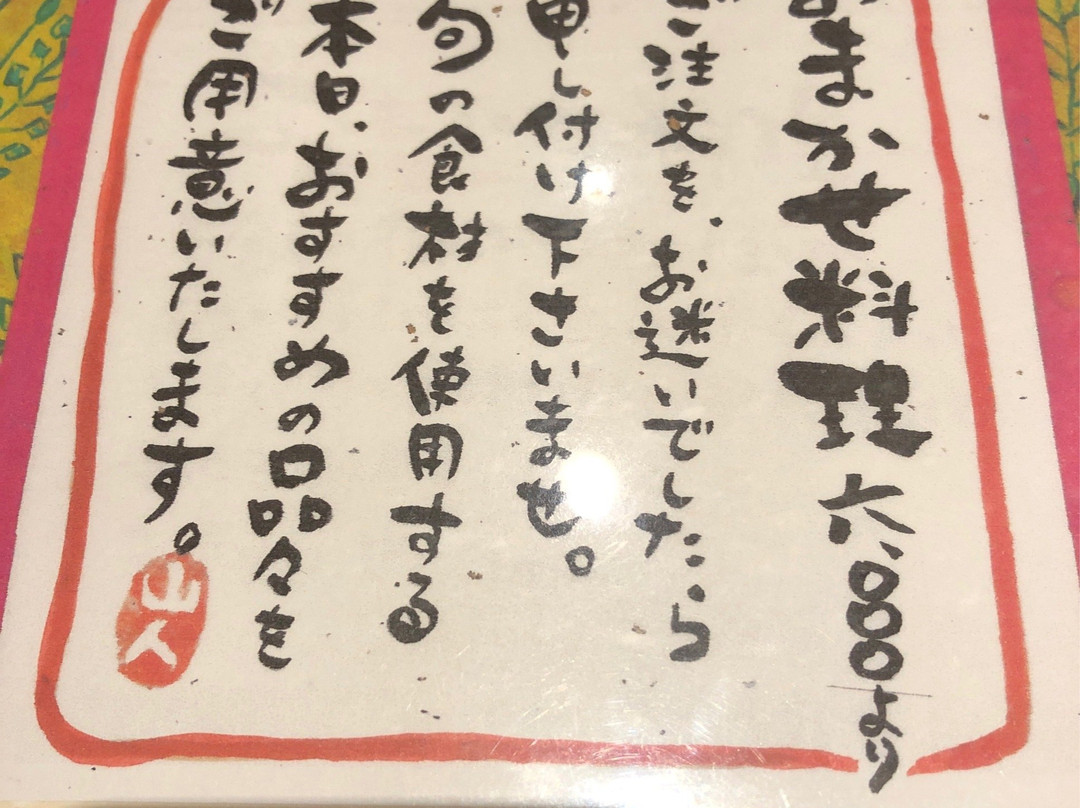 おまかせ料理 六、〇〇〇より
ご注文を、お迷いでしたら
申し付け下さいませ。
旬の食材を使用する
本日、おすすめの品々を
ご用意いたします。
山人